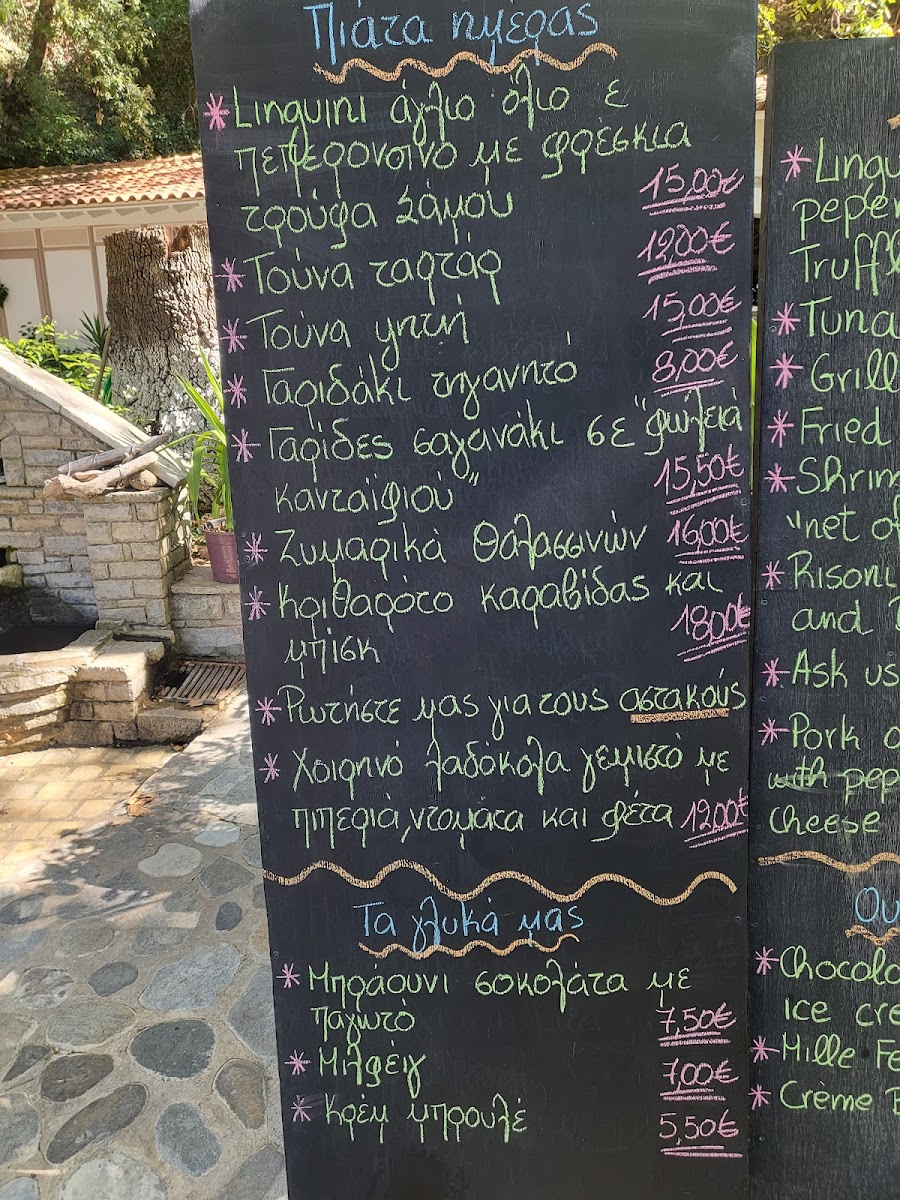 Πιάτα ημέρας
* Linguini άγλιο όλιο ε
πεπερονσινο με φρέσκια
τρούφα Σάμου 15,00€
* Τούνα ταρτάρ 12,00€
* Τούνα ψητή 15,00€
* Γαριδάκι τηγανητό 8,00€
* Γαρίδες σαγανάκι σε "φωλειά
κανταϊφιού" 15,50€
* Ζυμαρικά Θάλασσινών 16,00€
* Κριθαρότο καραβίδας και
μπίσκ 18,00€
* Ρωτήστε μας για τους αστακούς
* Χοιρηνό λαδόκολα γεμιστό με
πιπεριά, ντομάτα και φέτα 12,00€
Τα γλυκά μας
* Μπράουνι σοκολάτα με
παγωτό 7,50€
* Μιλφέιγ 7,00€
* Κρέμ μπρουλέ 5,50€
* Lingu
peper
Truffl
* Tuna
* Grill
* Fried
* Shrim
"net of
* Risoni
and
* Ask us
* Pork o
with pep
cheese
Ou
* Chocola
ice cre
* Mille Fe
* Crème B